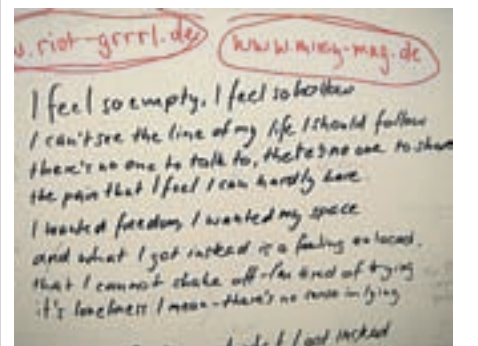 w.riot-grrrl.de
www.missy-mag.de
I feel so empty, I feel so hollow
I can't see the line of my life I should follow
there's no one to talk to, there's no one to share
the pain that I feel I can hardly bare
I wanted freedom, I wanted my space
and what I got instead is a feeling
that I cannot shake off - I'm tired of trying
it's loneliness I mean - there's no sense in lying
I got instead